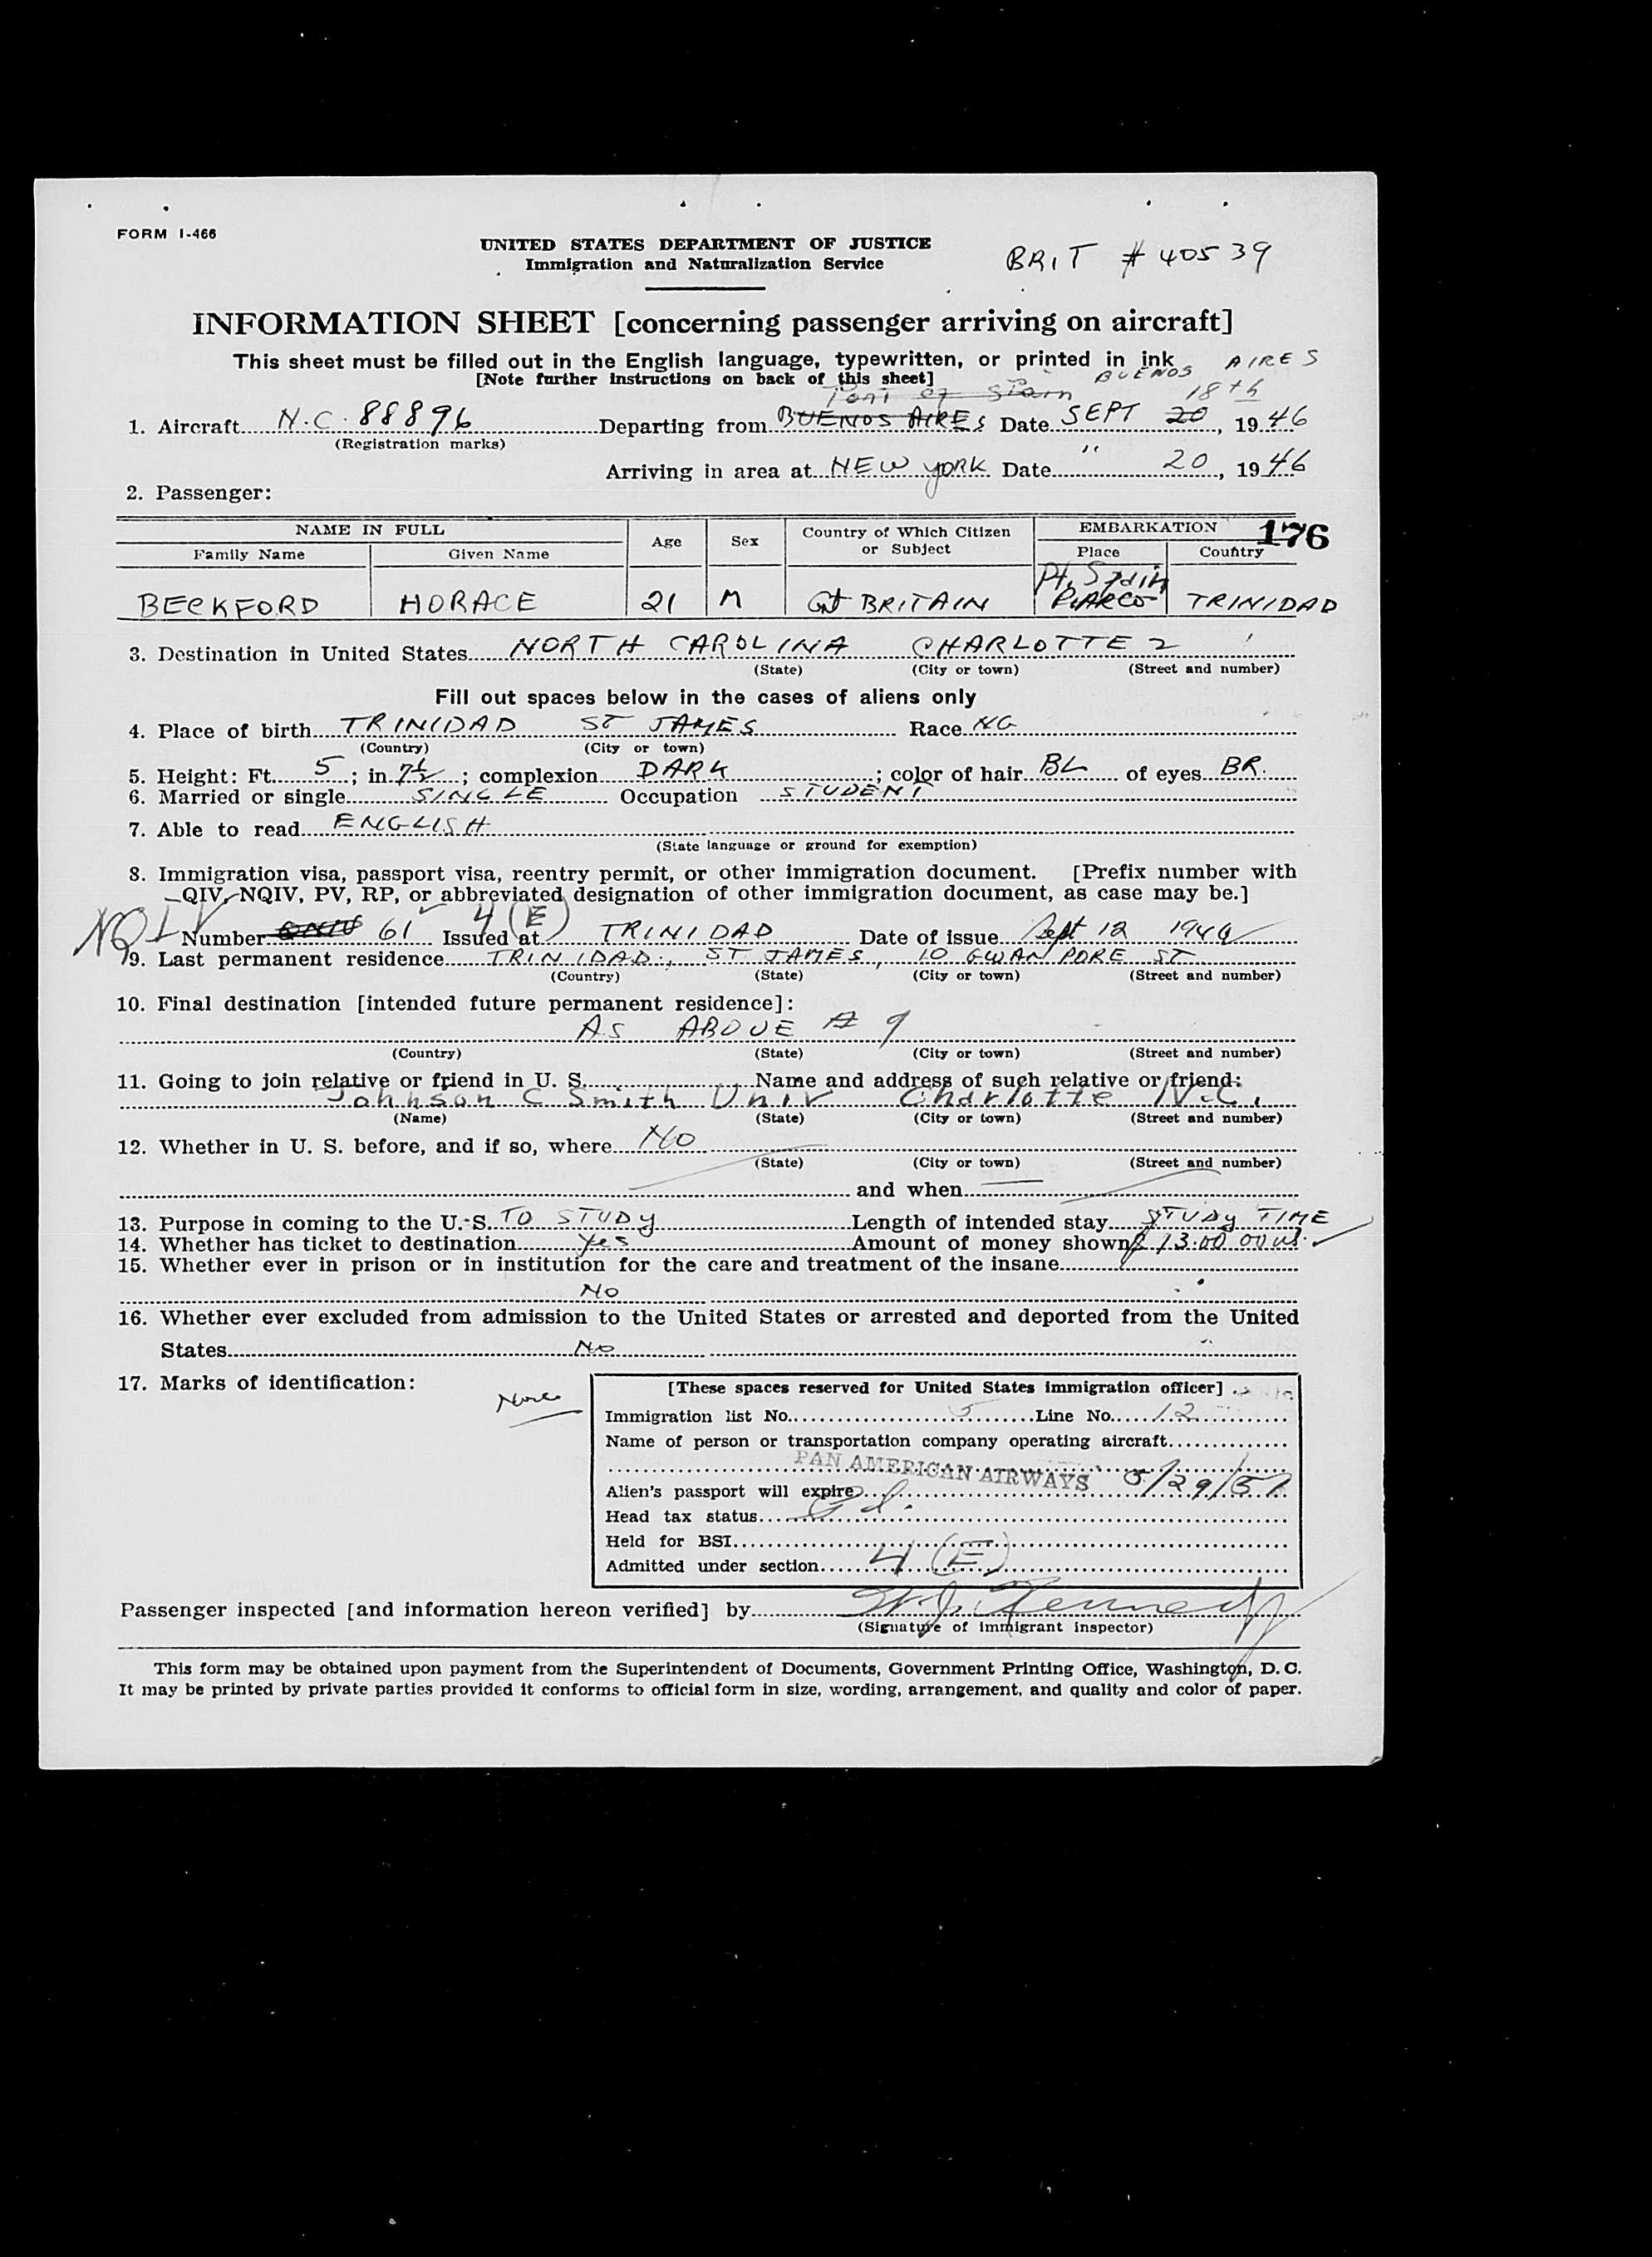 FORM I-466
UNITED STATES DEPARTMENT OF JUSTICE
Immigration and Naturalization Service
BRIT # 40539
INFORMATION SHEET [concerning passenger arriving on aircraft]
This sheet must be filled out in the English language, typewritten, or printed in ink
[Note further instructions on back of this sheet]
BUENOS AIRES
Port of Spain 18th
1. Aircraft N.C. 88896 Departing from BUENOS AIRES Date SEPT 20, 1946
(Registration marks)
Arriving in area at NEW YORK Date " 20, 1946
2. Passenger:
NAME IN FULL Age Sex Country of Which Citizen or Subject EMBARKATION 176
Family Name Given Name Place Country
Pt. Spain
BECKFORD HORACE 21 M Gt BRITAIN PIARCO TRINIDAD
3. Destination in United States NORTH CAROLINA CHARLOTTE 2
(State) (City or town) (Street and number)
Fill out spaces below in the cases of aliens only
4. Place of birth TRINIDAD ST JAMES Race NG
(Country) (City or town)
5. Height: Ft. 5; in 7½; complexion DARK; color of hair BL of eyes BR.
6. Married or single SINGLE Occupation STUDENT
7. Able to read ENGLISH
(State language or ground for exemption)
8. Immigration visa, passport visa, reentry permit, or other immigration document. [Prefix number with
QIV, NQIV, PV, RP, or abbreviated designation of other immigration document, as case may be.]
NQIV Number 61 4(E) Issued at TRINIDAD Date of issue Sept 12 194
9. Last permanent residence TRINIDAD, ST JAMES, 10 GWANPORE ST
(Country) (State) (City or town) (Street and number)
10. Final destination [intended future permanent residece]:
AS ABOVE # 9
(Country) (State) (City or town) (Street and number)
11. Going to join relative or friend in U. S. Name and address of such relative or friend:
Johnson C Smith Univ Charlotte N.C.
(Name) (State) (City or town) (Street and number)
12. Whether in U. S. before, and if so, where No
(State) (City or town) (Street and number)
and when
13. Purpose in coming to the U. S. TO STUDY Length of intended stay STUDY TIME
14. Whether has ticket to destination Yes Amount of money shown
15. Whether ever in prison or in institution for the care and treatment of the insane
No
16. Whether ever excluded from admission to the United States or arrested and deported from the United
States No
17. Marks of identification: None
[These spaces reserved for United States immigration officer]
Immigration list No. 5 Line No. 12
Name of person or transportation company operating aircraft
PAN AMERICAN AIRWAYS
Alien's passport will expire 5/29/51
Head tax status
Held for BSI
Admitted under section 4 (E)
Passenger inspected [and information hereon verified] by W. J. Kennedy
(Signature of immigrant inspector)
This form may be obtained upon payment from the Superintendent of Documents, Government Printing Office, Washington, D. C.
It may be printed by private parties provided it conforms to official form in size, wording, arrangement, and quality and color of paper.